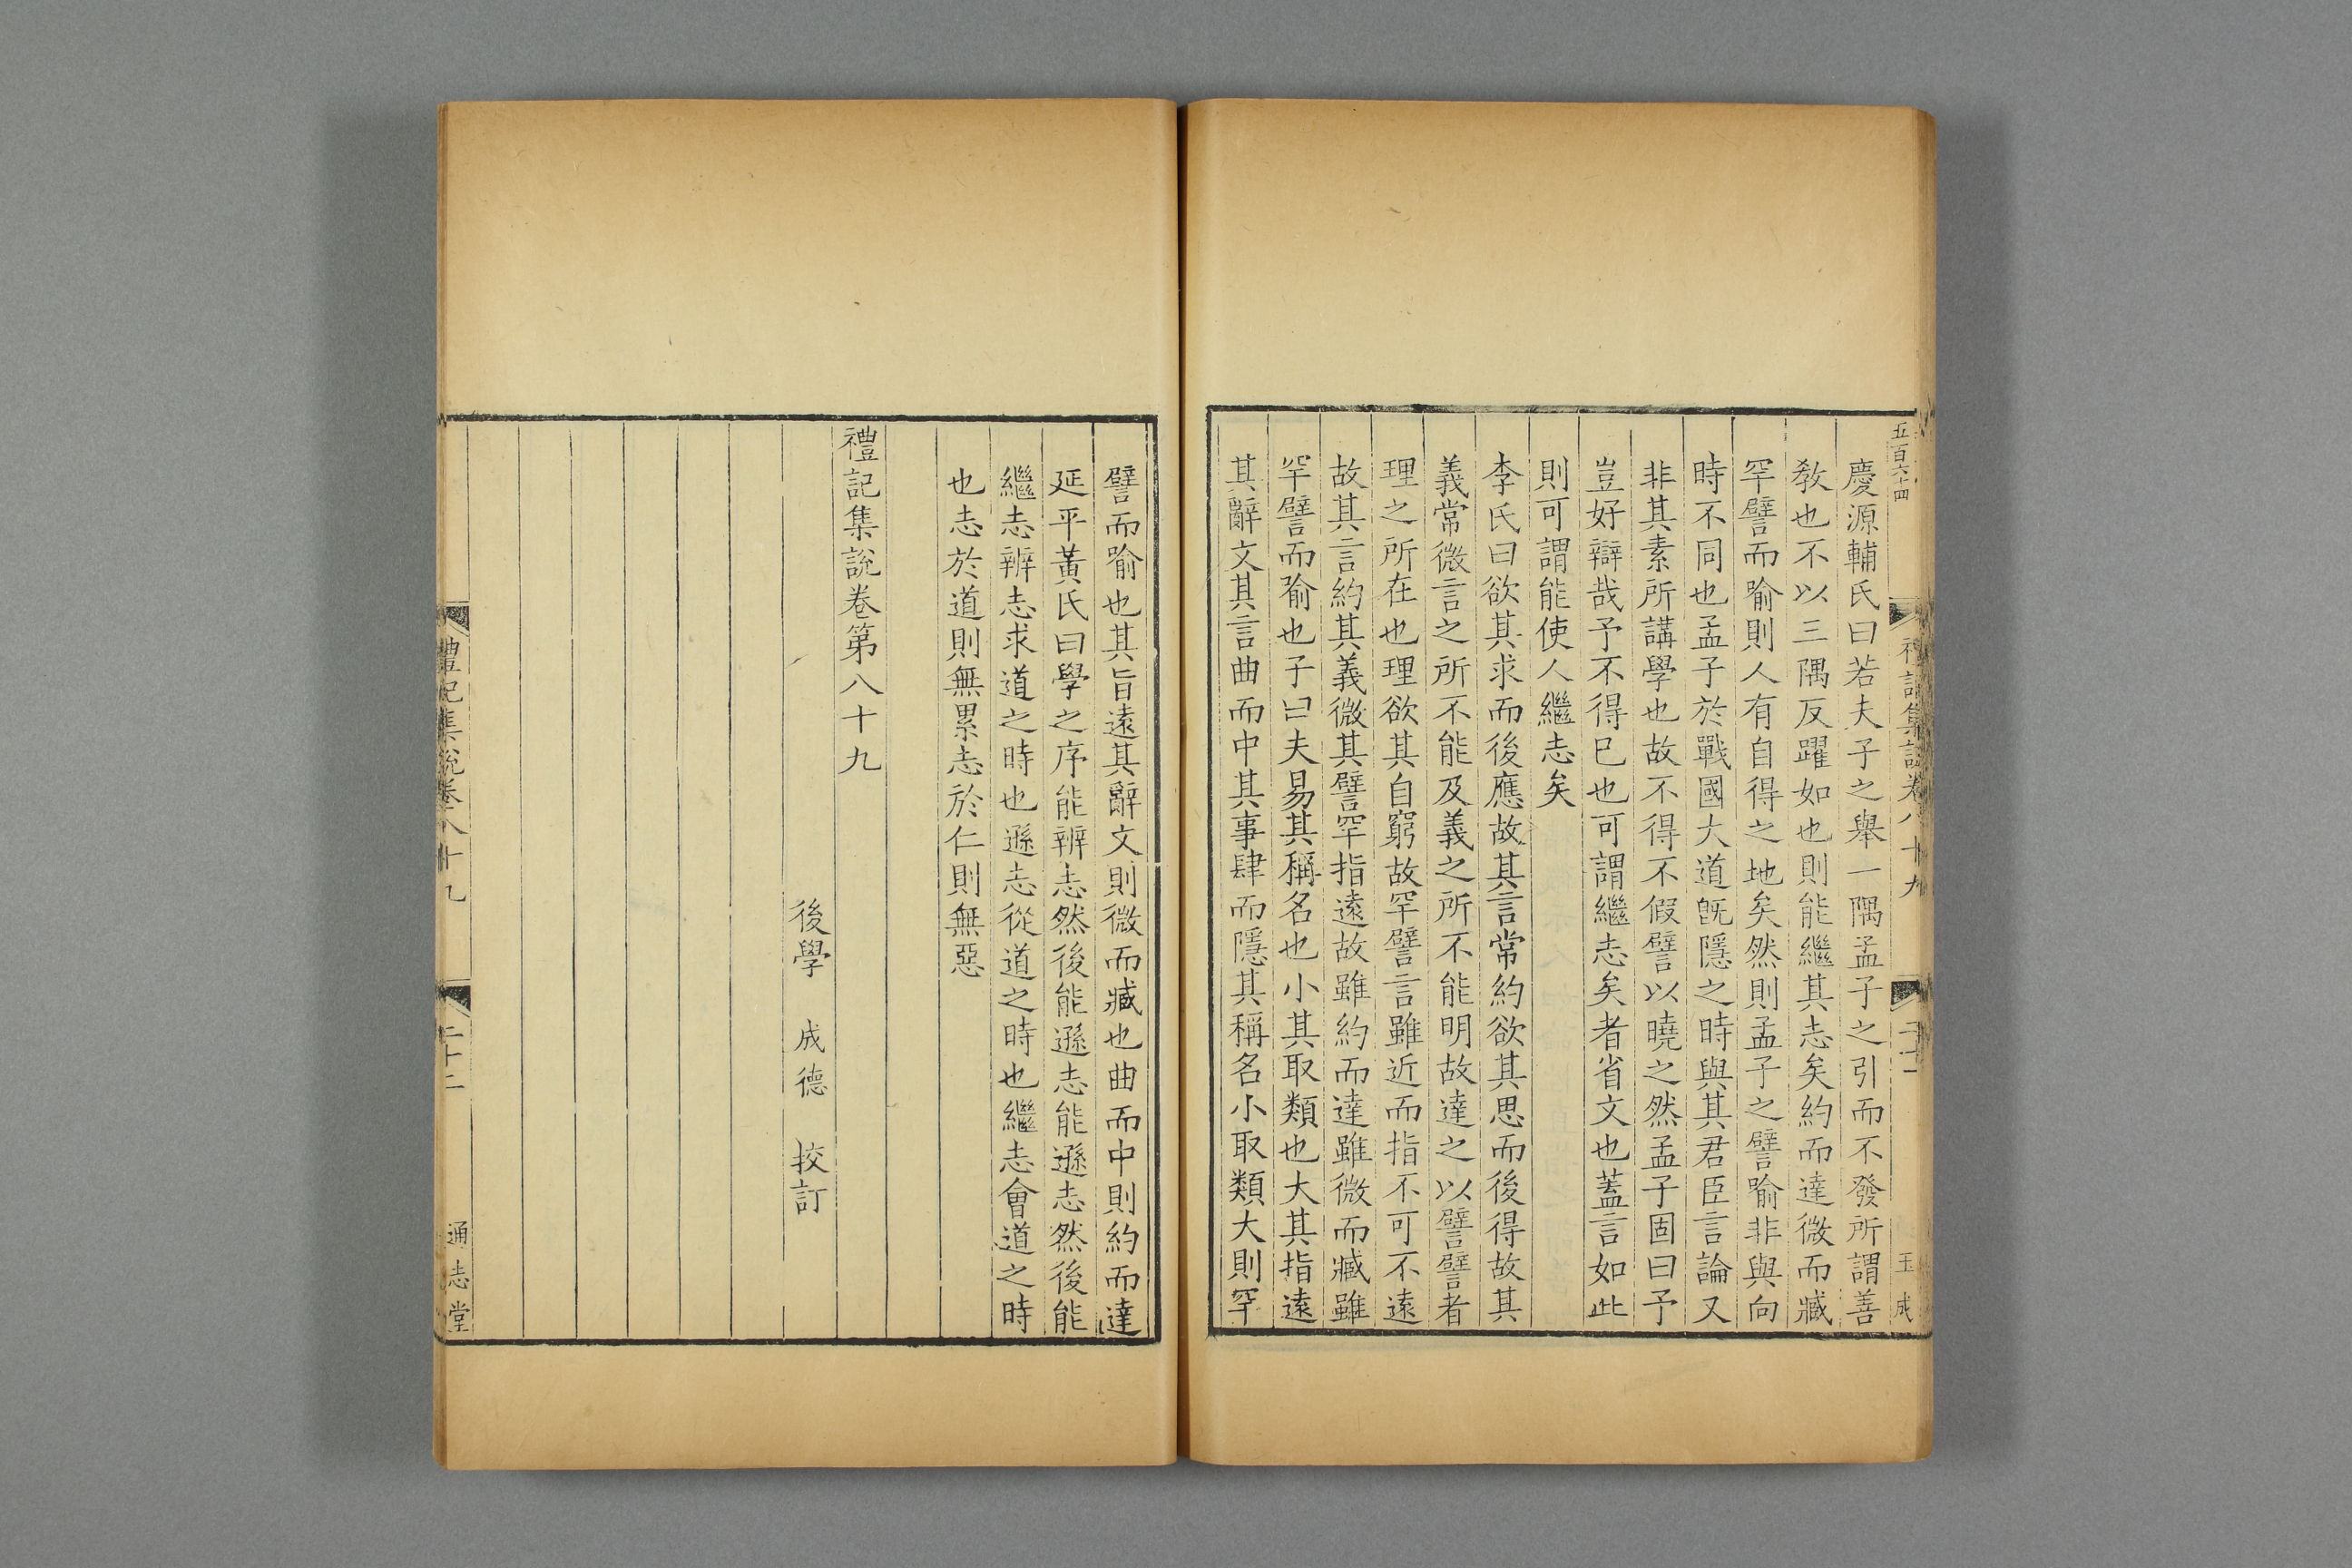 五百六十四
禮記集說卷八十九
二十一
玉成
慶源輔氏曰若夫子之舉一隅孟子之引而不發所謂善
教也不以三隅反躍如也則能繼其志矣約而達微而臧
罕譬而喻則人有自得之地矣然則孟子之譬喻非與向
時不同也孟子於戰國大道旣隱之時與其君臣言論又
非其素所講學也故不得不假譬以曉之然孟子固曰予
豈好辯哉予不得已也可謂繼志矣者省文也蓋言如此
則可謂能使人繼志矣
李氏曰欲其求而後應故其言常約欲其思而後得故其
義常微言之所不能及義之所不能明故達之以譬譬者
理之所在也理欲其自窮故罕譬言雖近而指不可不遠
故其言約其義微其譬罕指遠故雖約而達雖微而臧雖
罕譬而喻也子曰夫易其稱名也小其取類也大其指遠
其辭文其言曲而中其事肆而隱其稱名小取類大則罕
譬而喻也其旨遠其辭文則微而臧也曲而中則約而達
延平黃氏曰學之序能辨志然後能遜志能遜志然後能
繼志辨志求道之時也遜志從道之時也繼志會道之時
也志於道則無累志於仁則無惡
禮記集說卷第八十九
後學 成德 挍訂
禮記集說卷八十九
二十二
通志堂